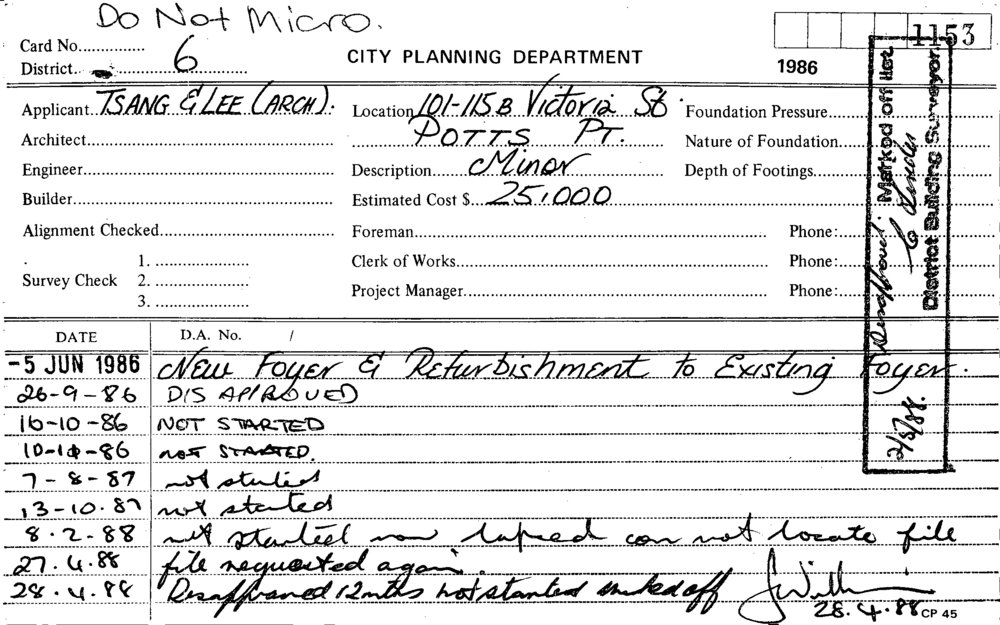 Do Not Micro.
Card No..............
District............ 6
CITY PLANNING DEPARTMENT
1986
1153
Applicant TSANG & LEE (ARCH).
Location 101-115B Victoria St
POTTS PT.
Foundation Pressure
Architect
Nature of Foundation
Engineer
Description Minor
Depth of Footings
Builder
Estimated Cost $ 25,000
Alignment Checked
Foreman
Phone:
Survey Check
1.
2.
3.
Clerk of Works
Phone:
Project Manager
Phone:
Disapproved. Marked off Her
District Building Surveyor
2/8/88.
DATE
D.A. No. /
-5 JUN 1986 New Foyer & Refurbishment to Existing Foyer.
26-9-86 DISAPPROVED
16-10-86 NOT STARTED
10-10-86 NOT STARTED.
7-8-87 not started
13-10.87 not started
8.2-88 not started now lapsed can not locate file
27.4.88 file requested again.
28.4.88 Disapproved 12mths not started marked off
28.4.88
CP 45